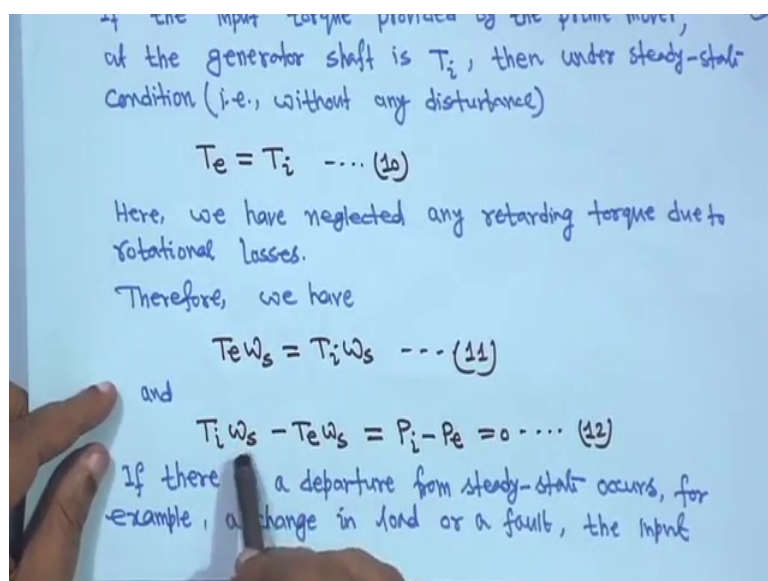 If the input torque provided by the prime mover,
at the generator shaft is Ti, then under steady-state
condition (i.e., without any disturbance)
Te = Ti ---- (10)
Here, we have neglected any retarding torque due to
rotational losses.
Therefore, we have
Teωs = Tiωs --- (11)
and
Tiωs - Teωs = Pi - Pe = 0 ---- (12)
If there a departure from steady-state occurs, for
example, a change in load or a fault, the input